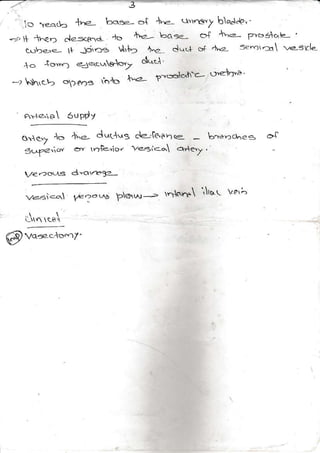 3
To reach the base of the urinary bladder.
→ It then descend to the base of the prostate
where it joins with the duct of the seminal vesicle
to form ejaculatory duct.
→ Which opens into the prostatic urethra.
Arterial Supply
Artery to the ductus deferense - branches of
Superior or Inferior vesical artery.
Venous drainage
Vesical venous plexus → internal iliac vein
clinical
Vasectomy.